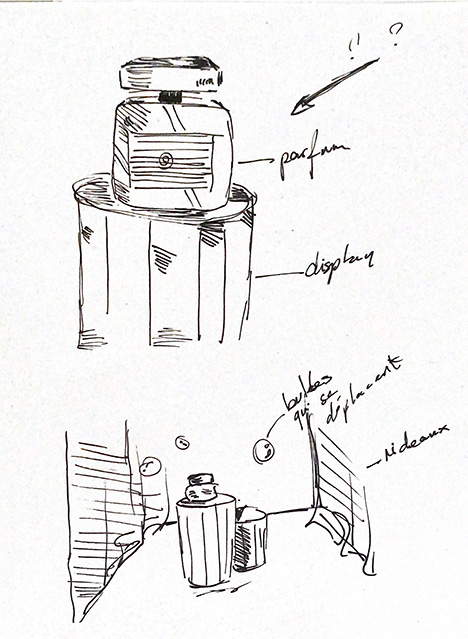 !! ?
parfum
display
bulles
qui se
déplacent
rideaux